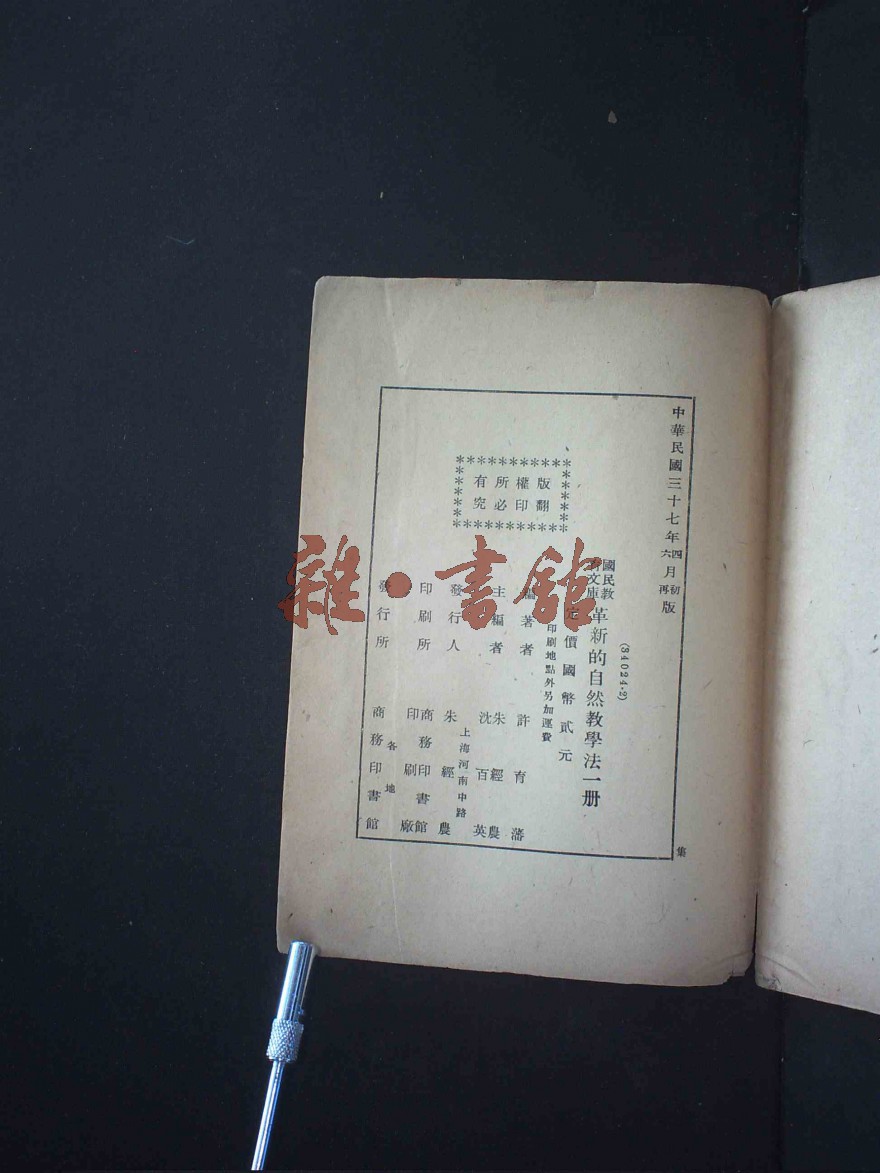 中華民國三十七年四月初版
六月再版
(34024·2)
國民教育文庫 革新的自然教學法一册
定價國幣貳元
印刷地點外另加運費
編著者 許育藩
主編者 朱經農 沈百英
發行人 朱經農
上海河南中路
印刷所 商務印書館印刷廠
發行所 商務印書館
各地
版權所有
翻印必究
集
雜·書館